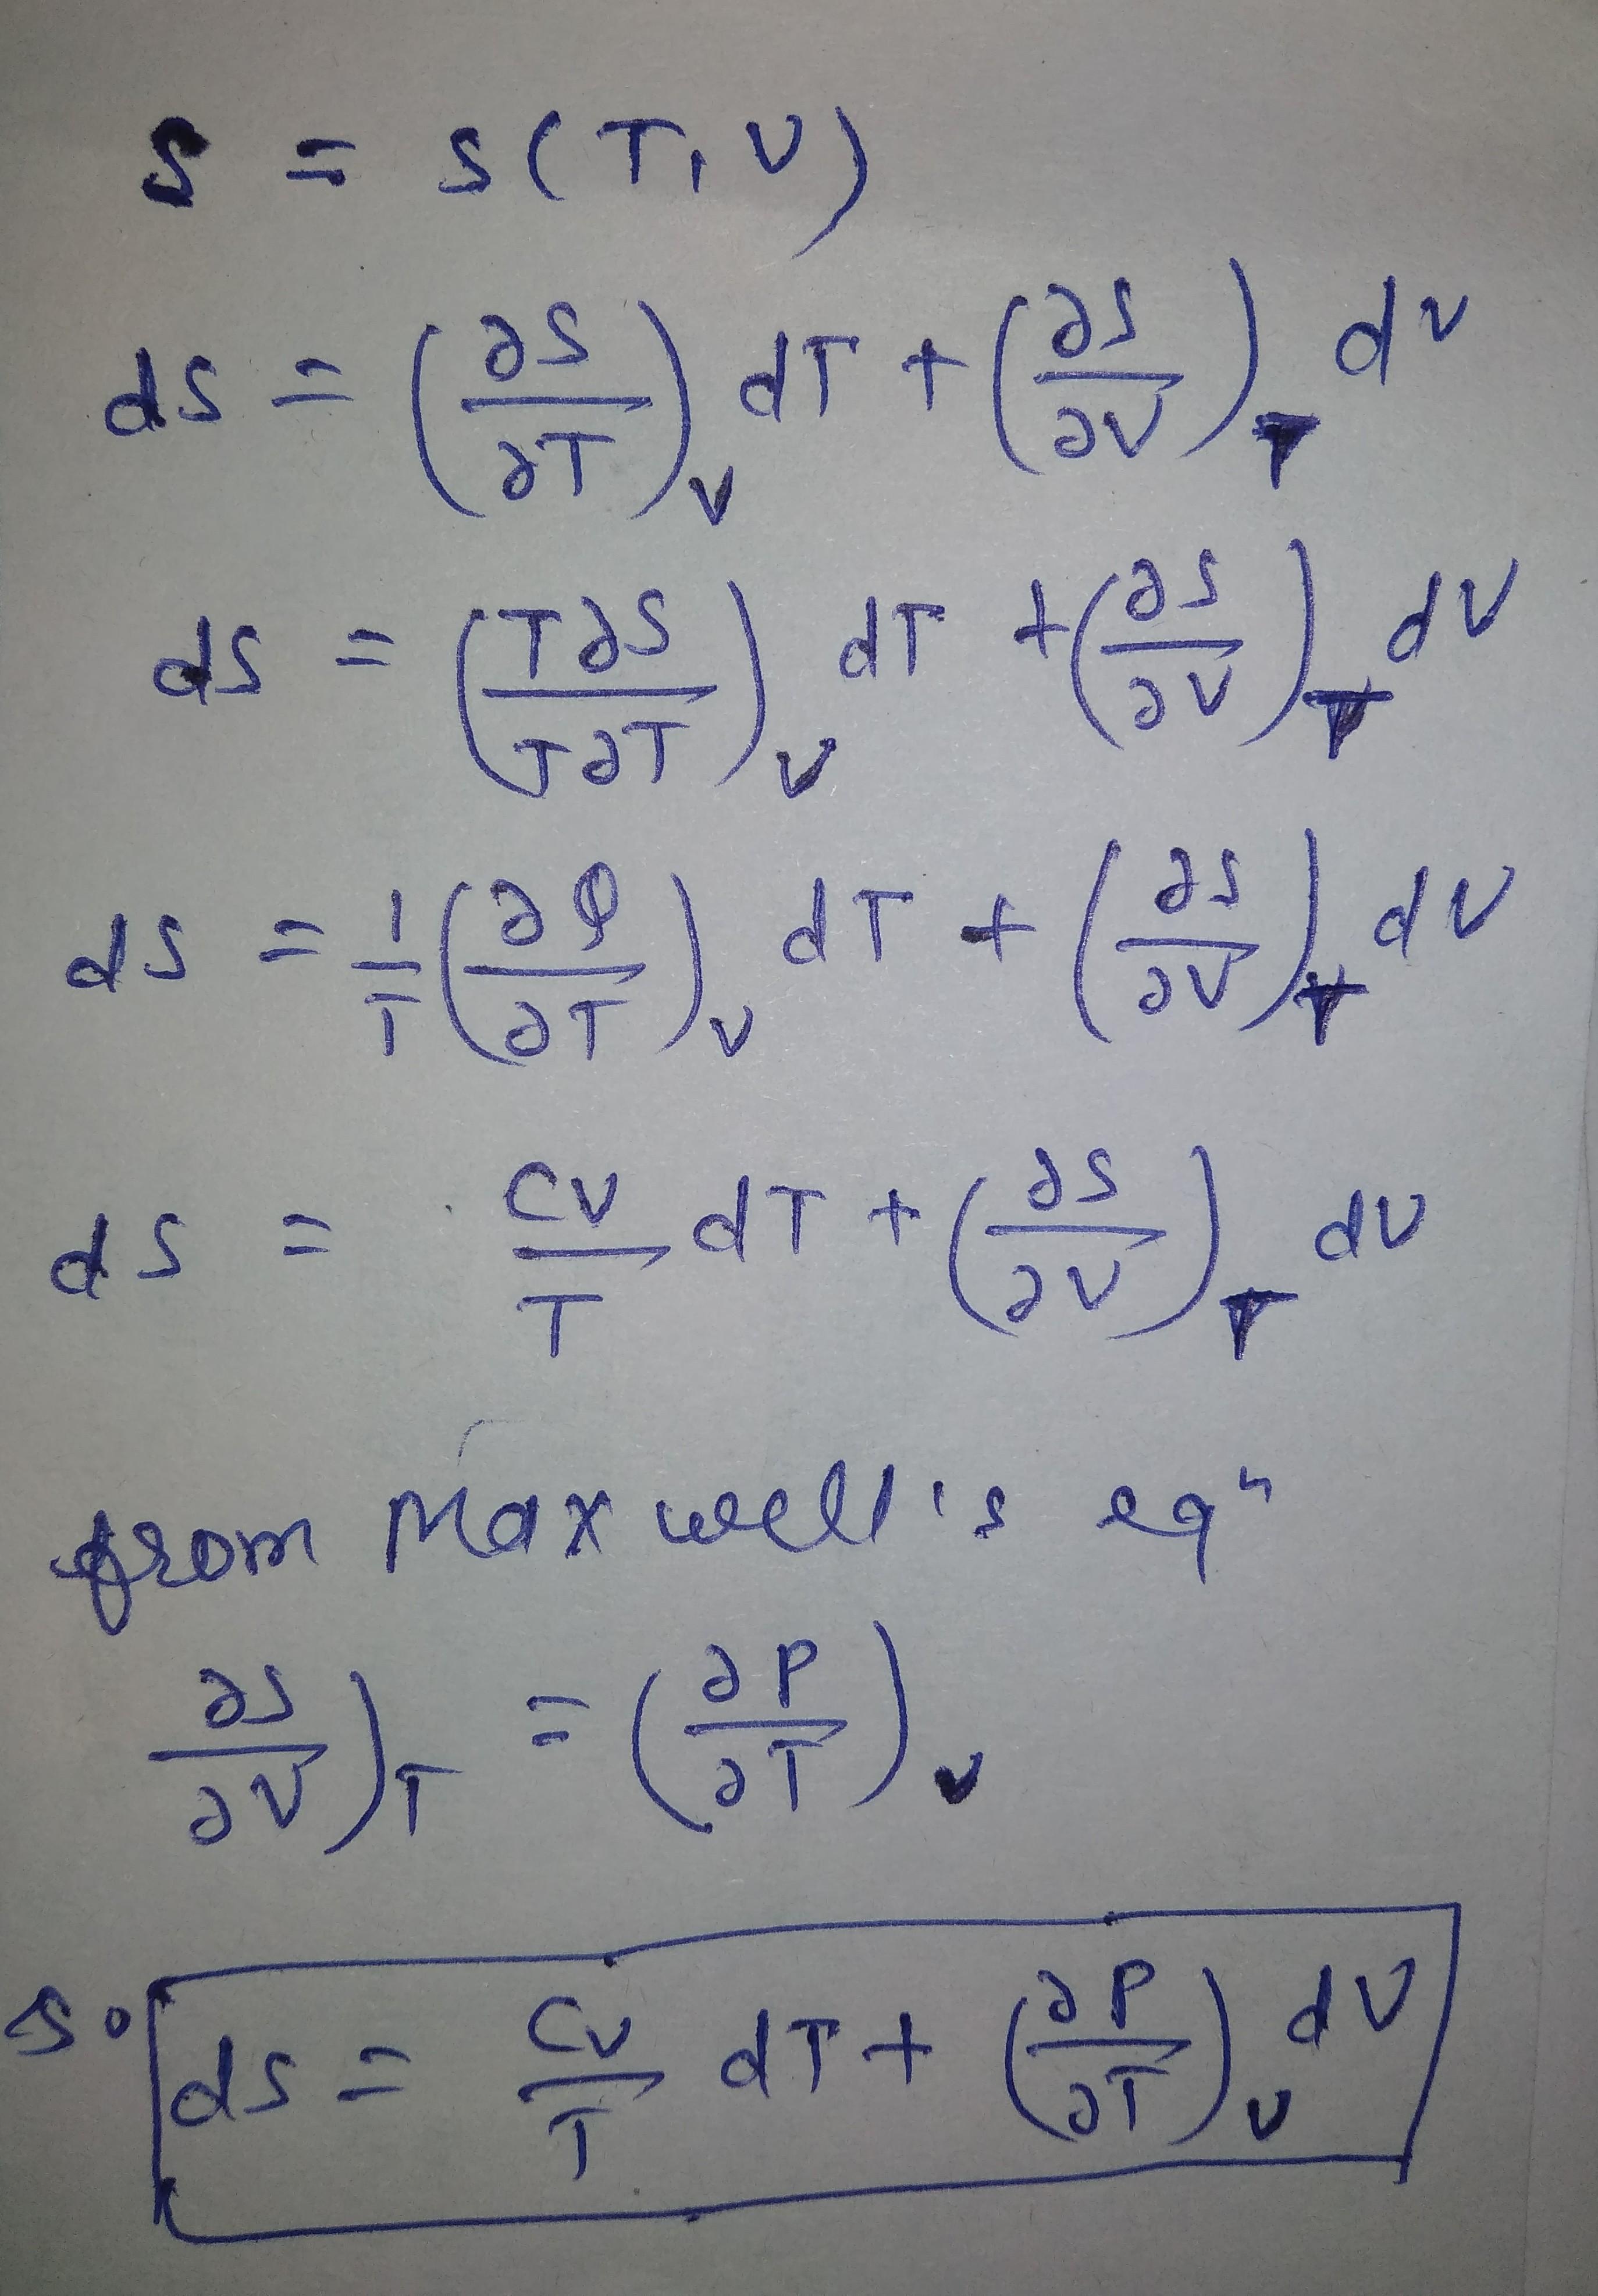 S = S(T, V)
dS = (∂S/∂T)_V dT + (∂S/∂V)_T dV
dS = (T∂S/T∂T)_V dT + (∂S/∂V)_T dV
dS = 1/T (∂Q/∂T)_V dT + (∂S/∂V)_T dV
dS = CV/T dT + (∂S/∂V)_T dV
from Maxwell's eqⁿ
∂S/∂V)_T = (∂P/∂T)_V
So dS = CV/T dT + (∂P/∂T)_V dV